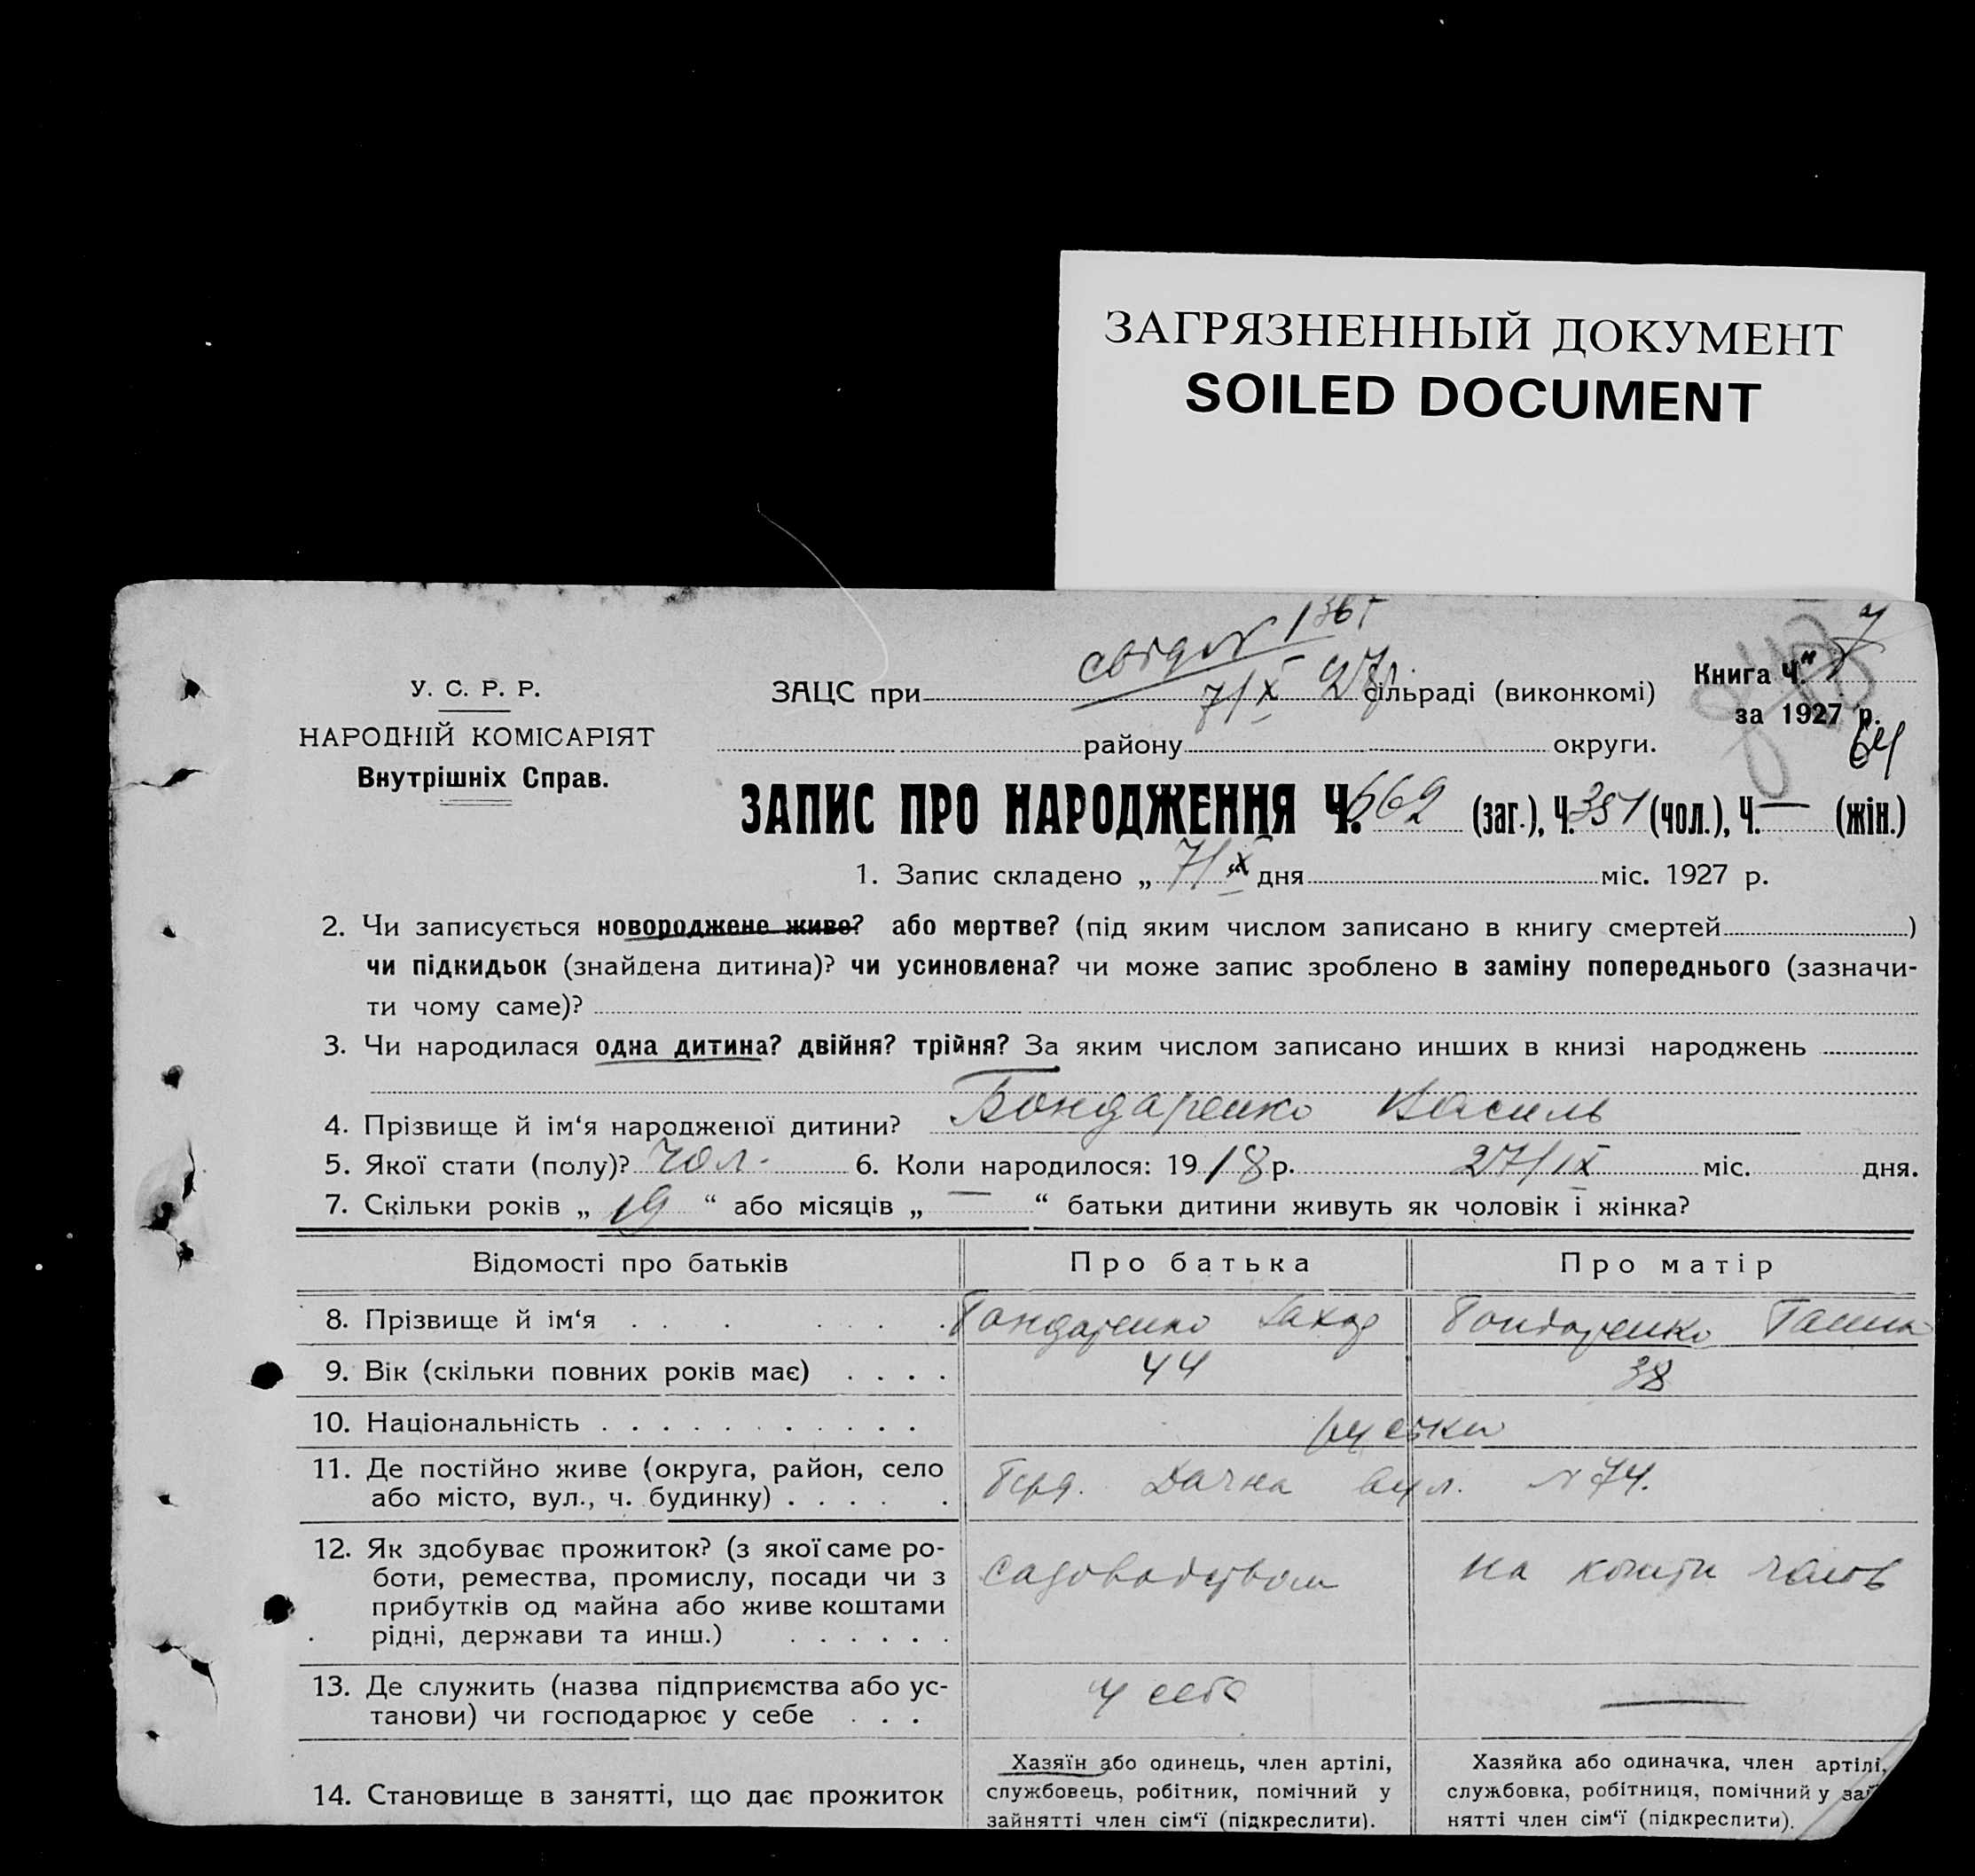 ЗАГРЯЗНЕННЫЙ ДОКУМЕНТ
SOILED DOCUMENT
У. С. Р. Р.
НАРОДНІЙ КОМІСАРІЯТ
Внутрішніх Справ.
7/X 27р.
ЗАЦС при сільраді (виконкомі)
району округи.
Книга Ч.
за 1927 р.
64
ЗАПИС ПРО НАРОДЖЕННЯ Ч. 662 (заг.), Ч. 351 (чол.), Ч. — (жін.)
1. Запис складено „ 7/X “ дня міс. 1927 р.
2. Чи записується новороджене живе? або мертве? (під яким числом записано в книгу смертей )
чи підкидьок (знайдена дитина)? чи усиновлена? чи може запис зроблено в заміну попереднього (зазначи-
ти чому саме)?
3. Чи народилася одна дитина? двійня? трійня? За яким числом записано инших в книзі народжень
4. Прізвище й ім‘я народженої дитини? Бондаренко Василь
5. Якої стати (полу)? чол. 6. Коли народилося: 19 18 р. 27/IX міс. дня.
7. Скільки років „ 19 “ або місяців „ — “ батьки дитини живуть як чоловік і жінка?
Відомості про батьків Про батька Про матір
8. Прізвище й ім‘я Бондаренко Захар Бондаренко Ганна
9. Вік (скільки повних років має) 44 38
10. Національність
11. Де постійно живе (округа, район, село
або місто, вул., ч. будинку) Берд. Дачна вул. N 74.
12. Як здобуває прожиток? (з якої саме ро-
боти, ремества, промислу, посади чи з
прибутків од майна або живе коштами
рідні, держави та инш.) садоводством на кошти чолов
13. Де служить (назва підприємства або ус-
танови) чи господарює у себе у себе —
14. Становище в занятті, що дає прожиток
Хазяїн або одинець, член артілі,
службовець, робітник, помічний у
зайнятті член сім‘ї (підкреслити).
Хазяйка або одиначка, член артілі,
службовка, робітниця, помічний у зай
нятті член сім‘ї (підкреслити).